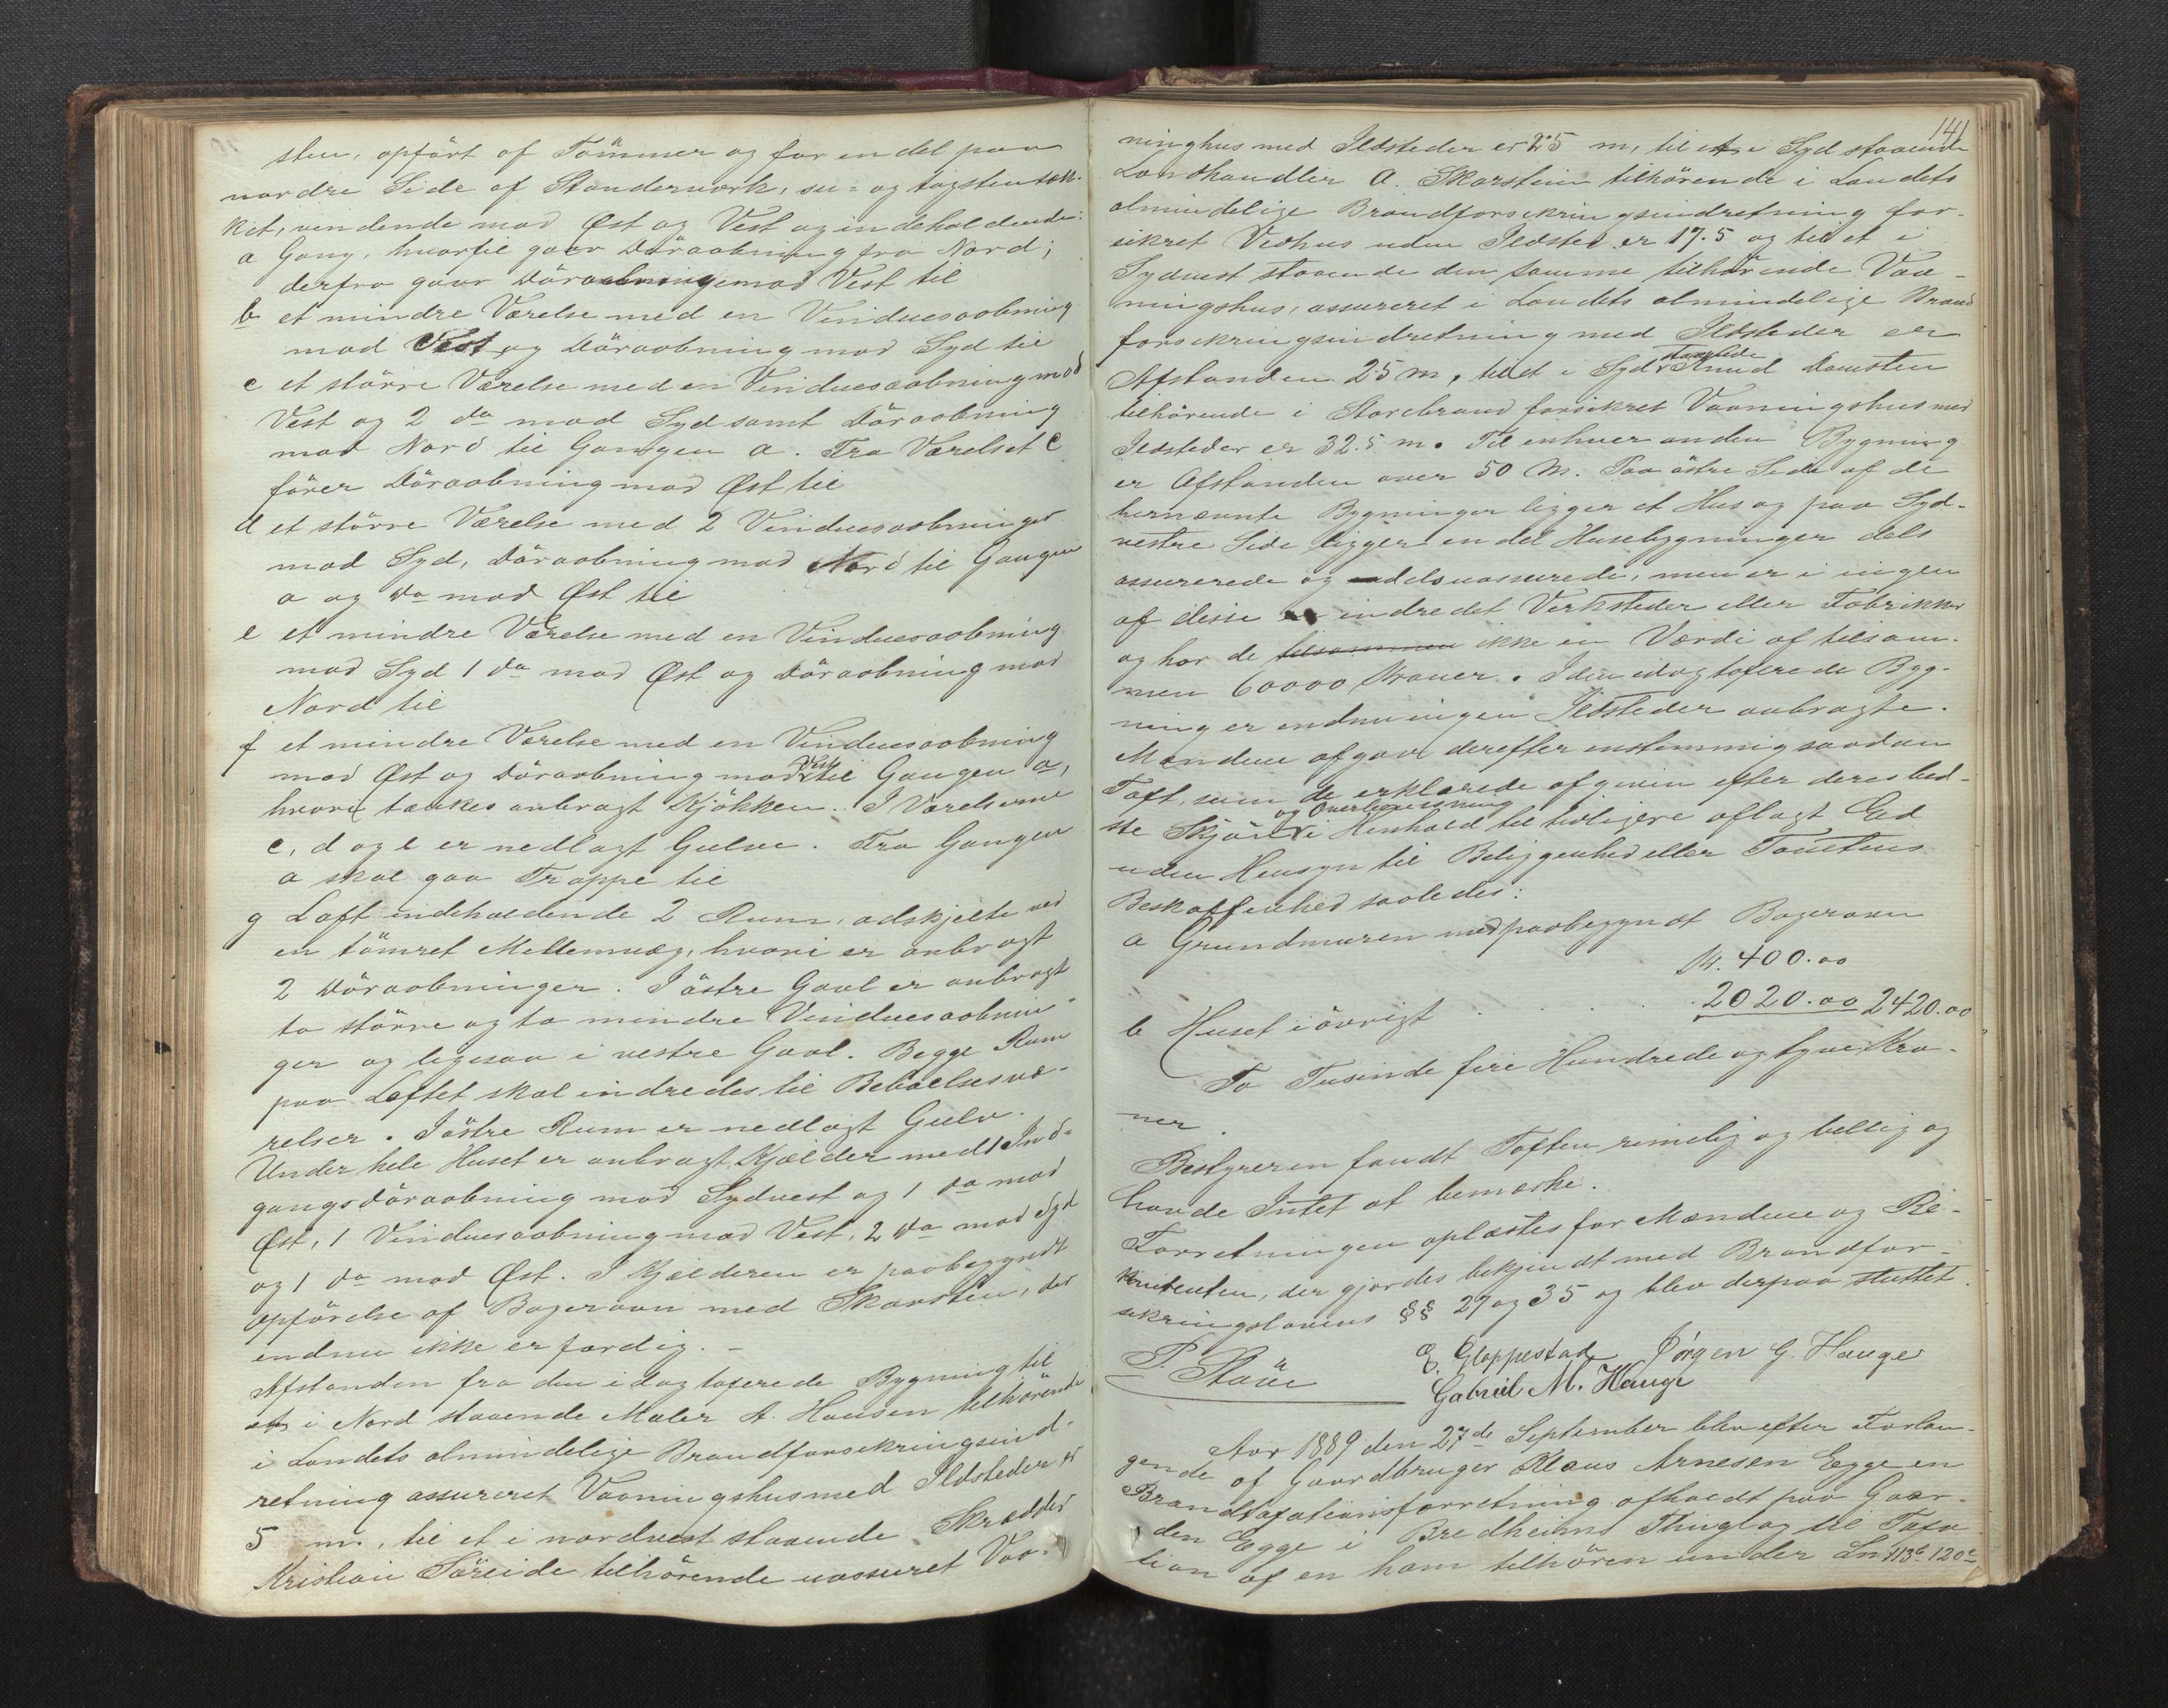 sten, opført af Tømmer og for en del paa
nordre Side af Standerværk, su= og tagstentæk-
ket, vendende mod Øst og Vest og indeholdende:
a Gang, hvortil gaar Døraabning fra Nord;
derfra gaar Døraabning mod Vest til
b et mindre Værelse med en Vinduesaabning
mod Vest og Døraabning mod Syd til
c et større Værelse med en Vinduesaabning mod
Vest og 2 do mod Syd samt Døraabning
mod Nord til Gangen a. Fra Værelset c
fører Døraabning mod Øst til
d et større Værelse med 2 Vinduesaabninger
mod Syd, Døraabning mod Nord til Gangen
a og do mod Øst til
e et mindre Værelse med en Vinduesaabning
mod Syd 1 do mod Øst og Døraabning mod
Nord til
f et mindre Værelse med en Vinduesaabning
mod Øst og Døraabning mod Vest til Gangen a,
hvori tænkes anbragt Kjøkken. I Værelserne
c, d og e er nedlagt Gulve. Fra Gangen
a skal gaa Trappe til
g Loft indeholdende 2 Rum, adskjelte ved
en tømret Mellemvæg, hvori er anbragt
2 Døraabninger. I østre Gavl er anbragt
to større og to mindre Vinduesaabnin-
ger og ligesaa i vestre Gavl. Begge Rum
paa Loftet skal indredes til Beboelsesvæ-
relser. I østre Rum er nedlagt Gulv.
Under hele Huset er anbragt Kjælder med 1 Ind-
gangsdøraabning mod Sydvest og 1 do mod
Øst, 1 Vinduesaabning mod Vest, 2 do mod Syd
og 1 do mod Øst. I Kjælderen er paabegyndt
Opførelse af Bagerovn med Skorsten, der
endnu ikke er færdig. –
Afstanden fra den idag taxerede Bygning til
et i Nord staaende Maler A. Hansen tilhørende
i Landets almindelige Brandforsikringsind-
retning assureret Vaaningshus med Ildsteder er
5 m., til et i nordvest staaende Skrædder
Kristian Søreide tilhørende uassureret Vaa-
141
ninghus med Ildsteder er 25 m, til et i Syd staaende
Landhandler A. Skarstein tilhørende i Landets
almindelige Brandforsikringsindretning for-
sikret Vedhus uden Ildsted er 17.5 og til et i
Sydvest staaende den samme tilhørende Vaa-
ningshus, assureret i Landets almindelige Brand
forsikringsindretning med Ildsteder er
Afstanden 25 m, til et i Syd staaende Knud Domsten
tilhørende i Storebrand forsikret Vaaningshus med
Ildsteder er 32.5 m. Til enhver anden Bygning
er Afstanden over 50 M. Paa østre Side af de
benævnte Bygninger ligger et Hus og paa Syd-
vestre Side ligger en del Husebygninger dels
assurerede og dels uassurede, men er i ingen
af disse indredet Verksteder eller Fabrikker
og har de tilsammen ikke en Værdi af tilsam-
men 60000 Kroner. I den idag taxerede Byg-
ning er endnu ingen Ildsteder anbragte.
Mændene afgav derefter enstemmig saadan
Taxt, som de erklærede afgiven efter deres bed-
ste Skjøn og Overbevisning i Henhold til tidligere aflagt Ed
uden Hensyn til Beliggenhed eller Tomtens
Beskaffenhed saaledes:
a Grundmuren med paabegyndt Bagerovn
Kr. 400.00
b Huset iøvrigt . . . . 2020.00 2420.00
To Tusinde fire Hundrede og tyve Kro-
ner.
Bestyreren fandt Taxten rimelig og billig og
havde Intet at bemærke.
Forretningen oplæstes for Mændene og Re-
kvirenten, der gjordes bekjendt med Brandfor-
sikringslovens §§ 27 og 35 og blev derpaa sluttet.
P. Støre E. Gloppestad Jørgen G. Hauge
Gabriel M. Hauge
Aar 1889 den 27de September blev efter Forlan-
gende af Gaardbruger Klaus Arnesen Egge en
Brandtaxationsforretning afholdt paa Gaar-
den Egge i Bredheims Thinglag til Taxa-
tion af en ham tilhøren under Ln 113b 120c